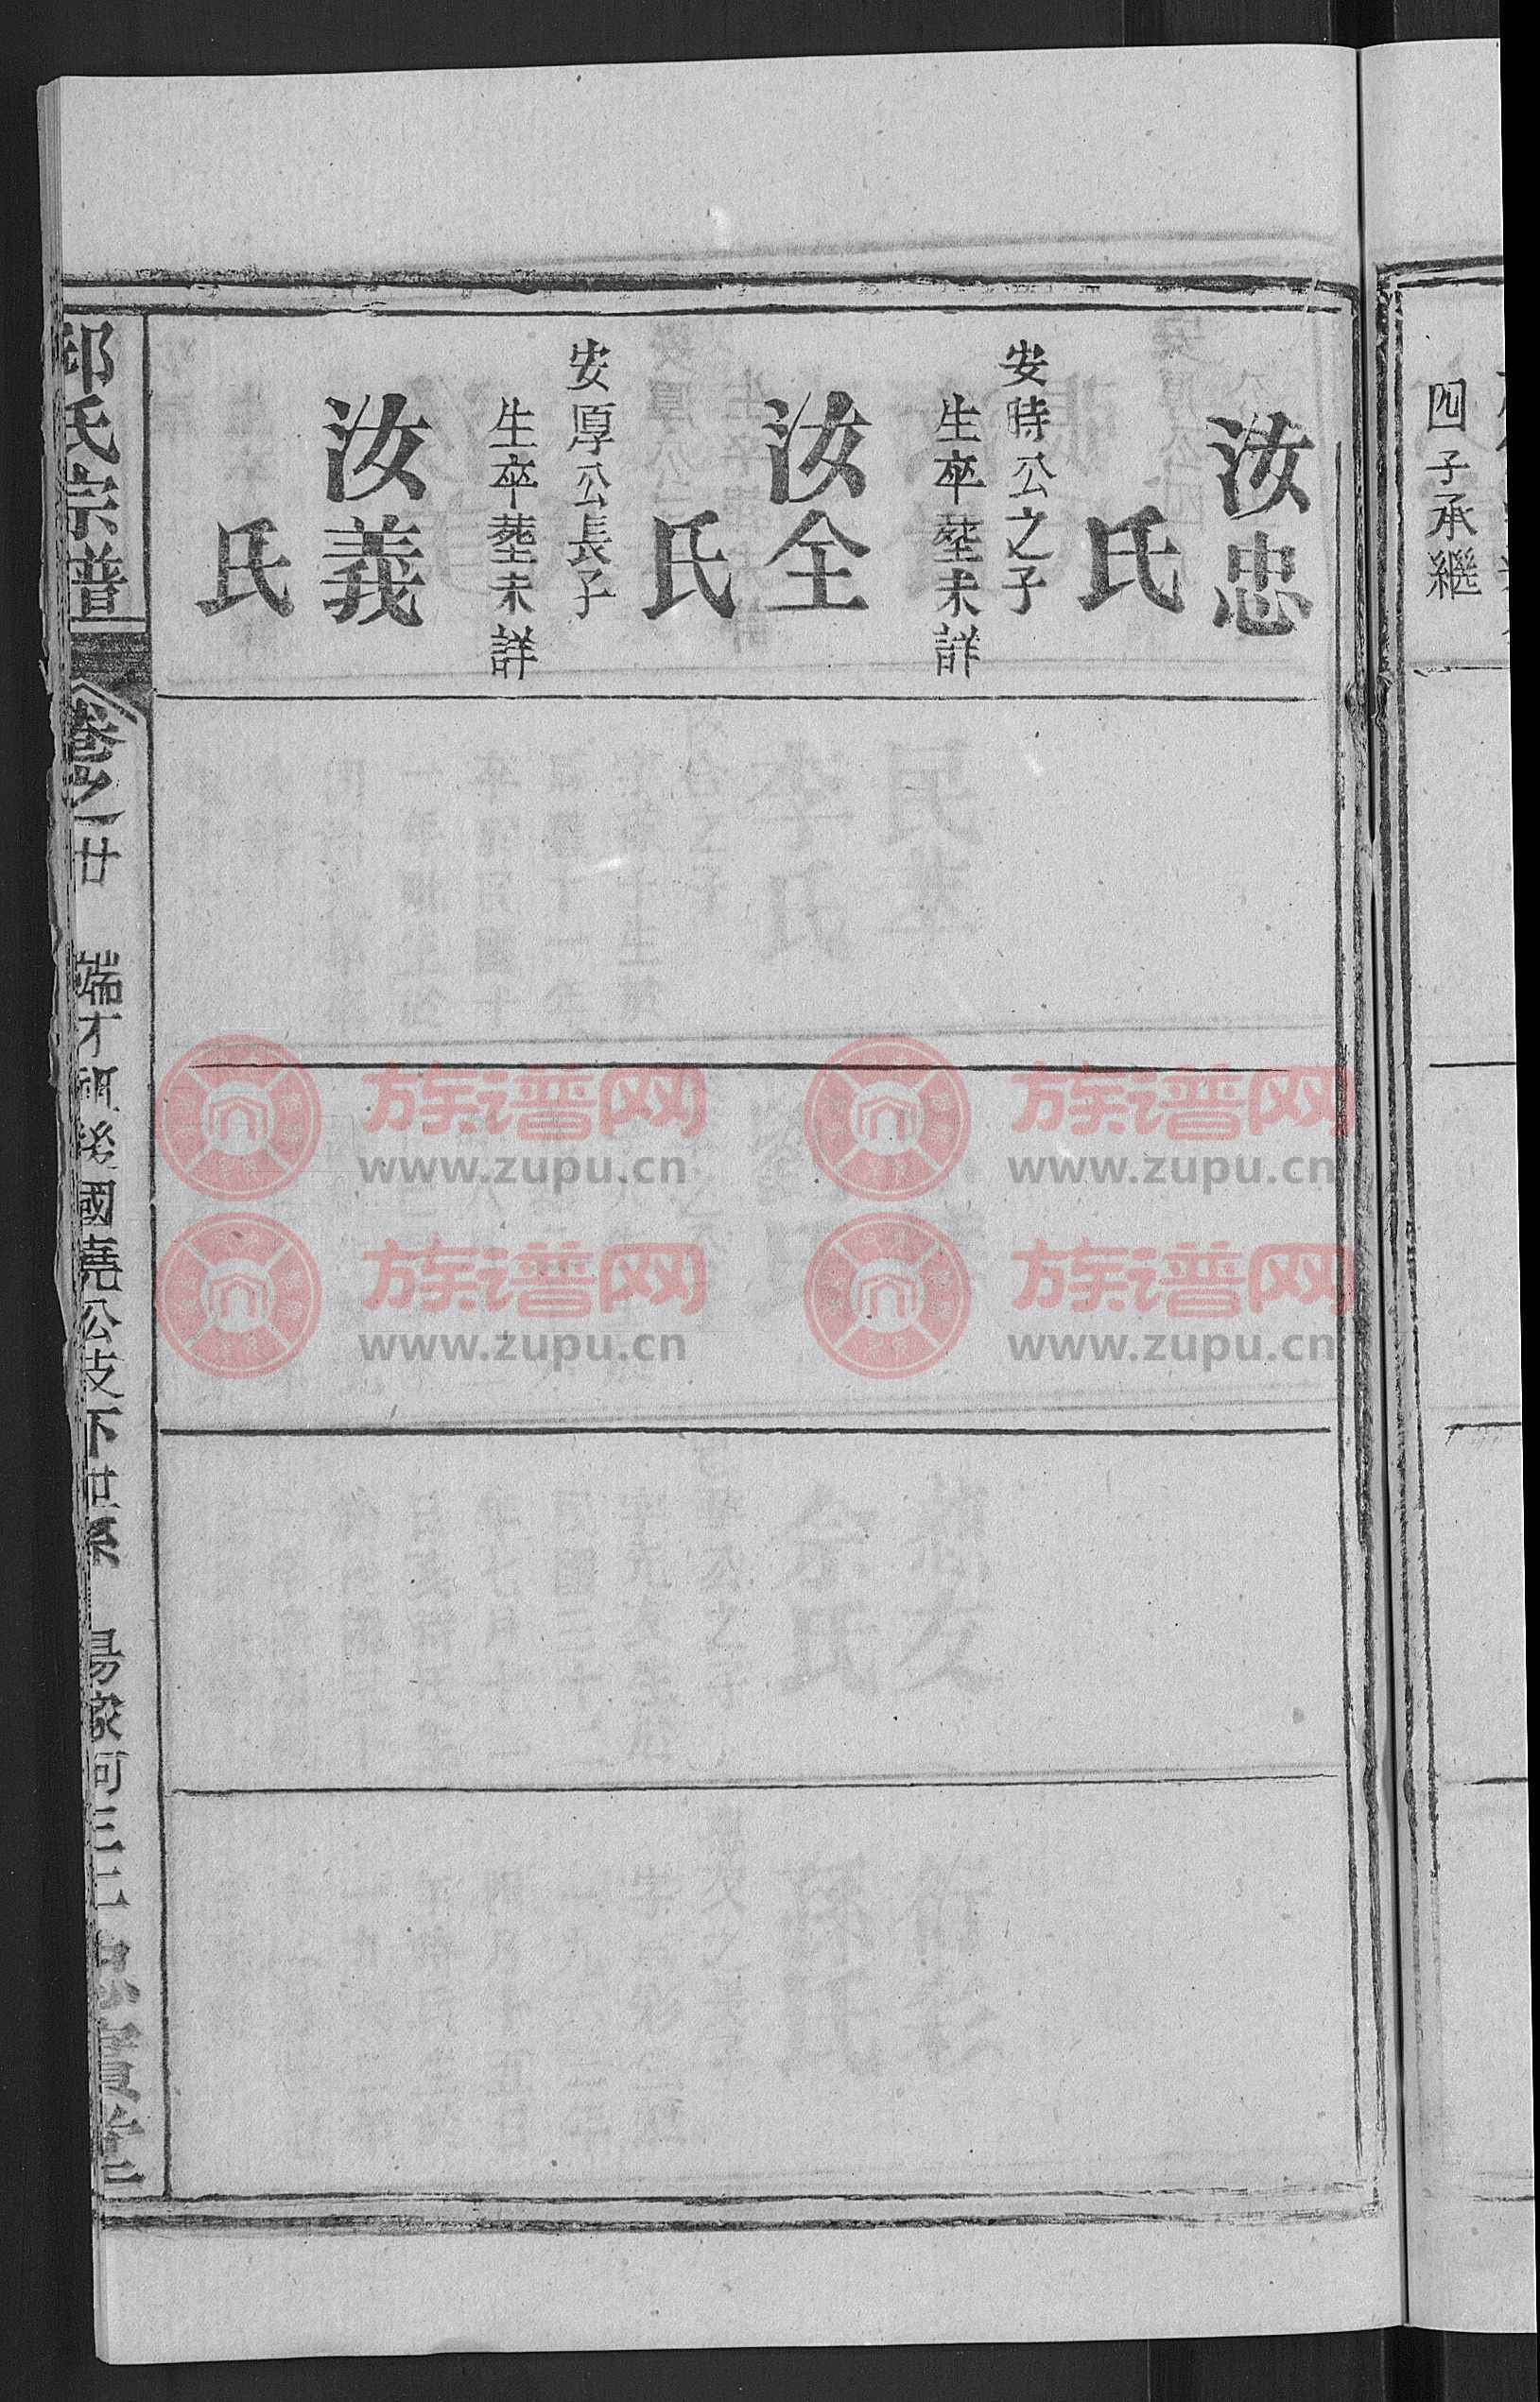 四子承繼
汝忠
氏
安時公之子
生卒塟未詳
汝全
氏
安厚公長子
生卒塟未詳
汝義
氏
邱氏宗譜
卷之廿
端才祖後國堯公支下世系
楊家河
族谱网
www.zupu.cn
族谱网
www.zupu.cn
族谱网
www.zupu.cn
族谱网
www.zupu.cn